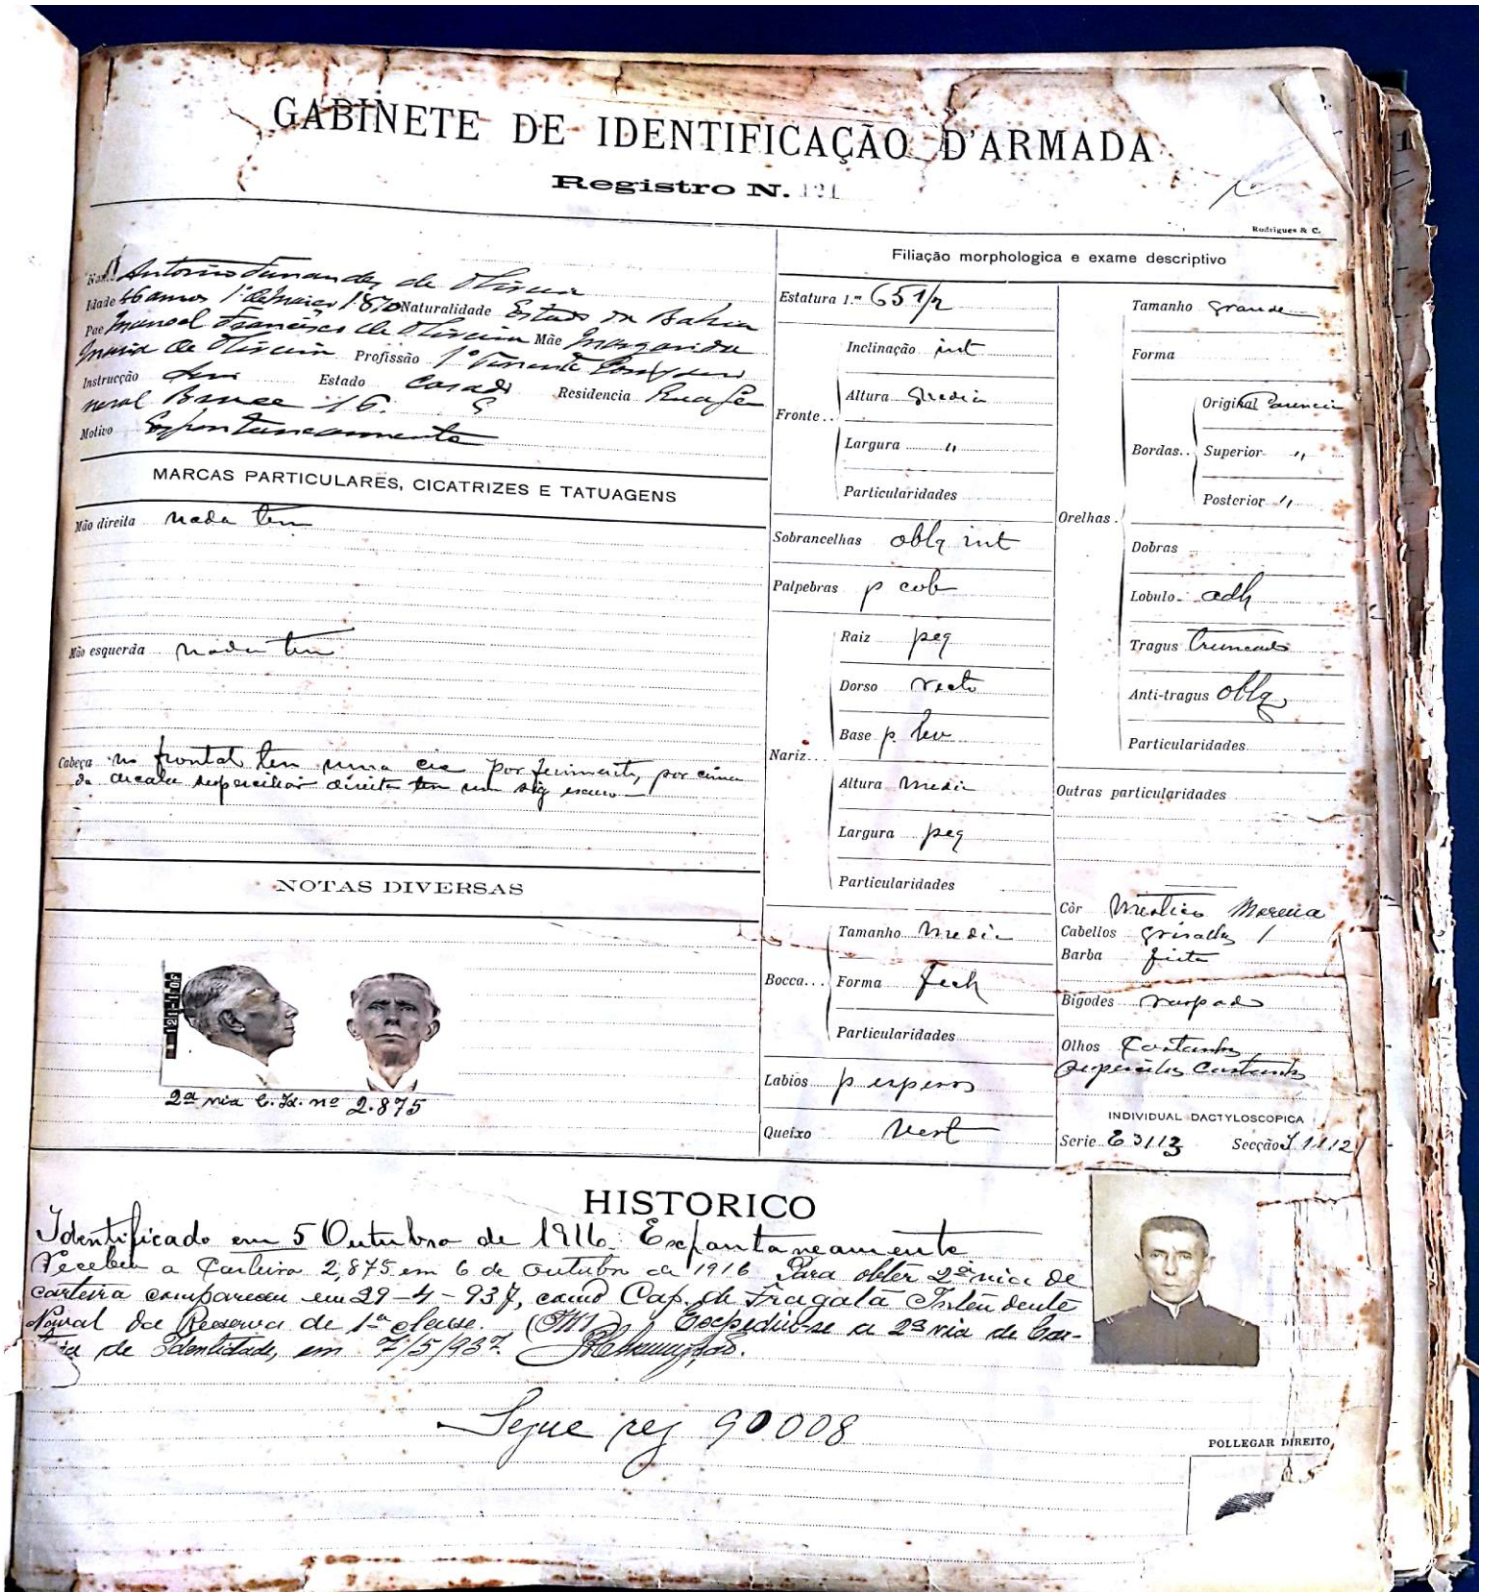 GABINETE DE IDENTIFICAÇÃO D'ARMADA
Registro N. 121
Rodrigues & C.
Nome Antonio Fernandes de Oliveira
Idade 46 annos 1º de Março 1870 Naturalidade Estado da Bahia
Pae Manoel Francisco de Oliveira Mãe Margarida
Maria de Oliveira Profissão 1º Tenente
Instrucção Estado Casado Residencia Rua Ge
neral Bruce 16.
Motivo Espontaneamente
MARCAS PARTICULARES, CICATRIZES E TATUAGENS
Mão direita nada tem
Mão esquerda nada tem
Cabeça no frontal tem uma cic por ferimento, por cima
da arcada superciliar direita tem um sig escuro
NOTAS DIVERSAS
2ª via C. Id. nº 2.875
Filiação morphologica e exame descriptivo
Estatura 1.m 65 1/2
Fronte..
Inclinação int
Altura Media
Largura "
Particularidades
Sobrancelhas oblq int
Palpebras p cob
Nariz...
Raiz peq
Dorso recto
Base p. lev
Altura Media
Largura peq
Particularidades
Bocca...
Tamanho Media
Forma fech
Particularidades
Labios p espesos
Queixo Vert
Orelhas.
Tamanho grande
Forma
Bordas..
Original
Superior "
Posterior "
Dobras
Lobulo adh
Tragus truncado
Anti-tragus oblq
Particularidades
Outras particularidades
Côr Mestiço Morena
Cabellos grisalhos
Barba feita
Bigodes raspado
Olhos Castanhos
Supercilios Castanhos
INDIVIDUAL DACTYLOSCOPICA
Serie E 3113 Secção I 1112
HISTORICO
Identificado em 5 Outubro de 1916. Espontaneamente
Recebeu a Carteira 2,875 em 6 de outubro de 1916 Para obter 2ª via de
carteira compareceu em 29-4-937, como Cap. de Fragata Intendente
Naval da Reserva de 1ª classe. Expediu-se a 2ª via de Car-
teira de Identidade, em 7/5/937.
Segue reg 90008
POLLEGAR DIREITO